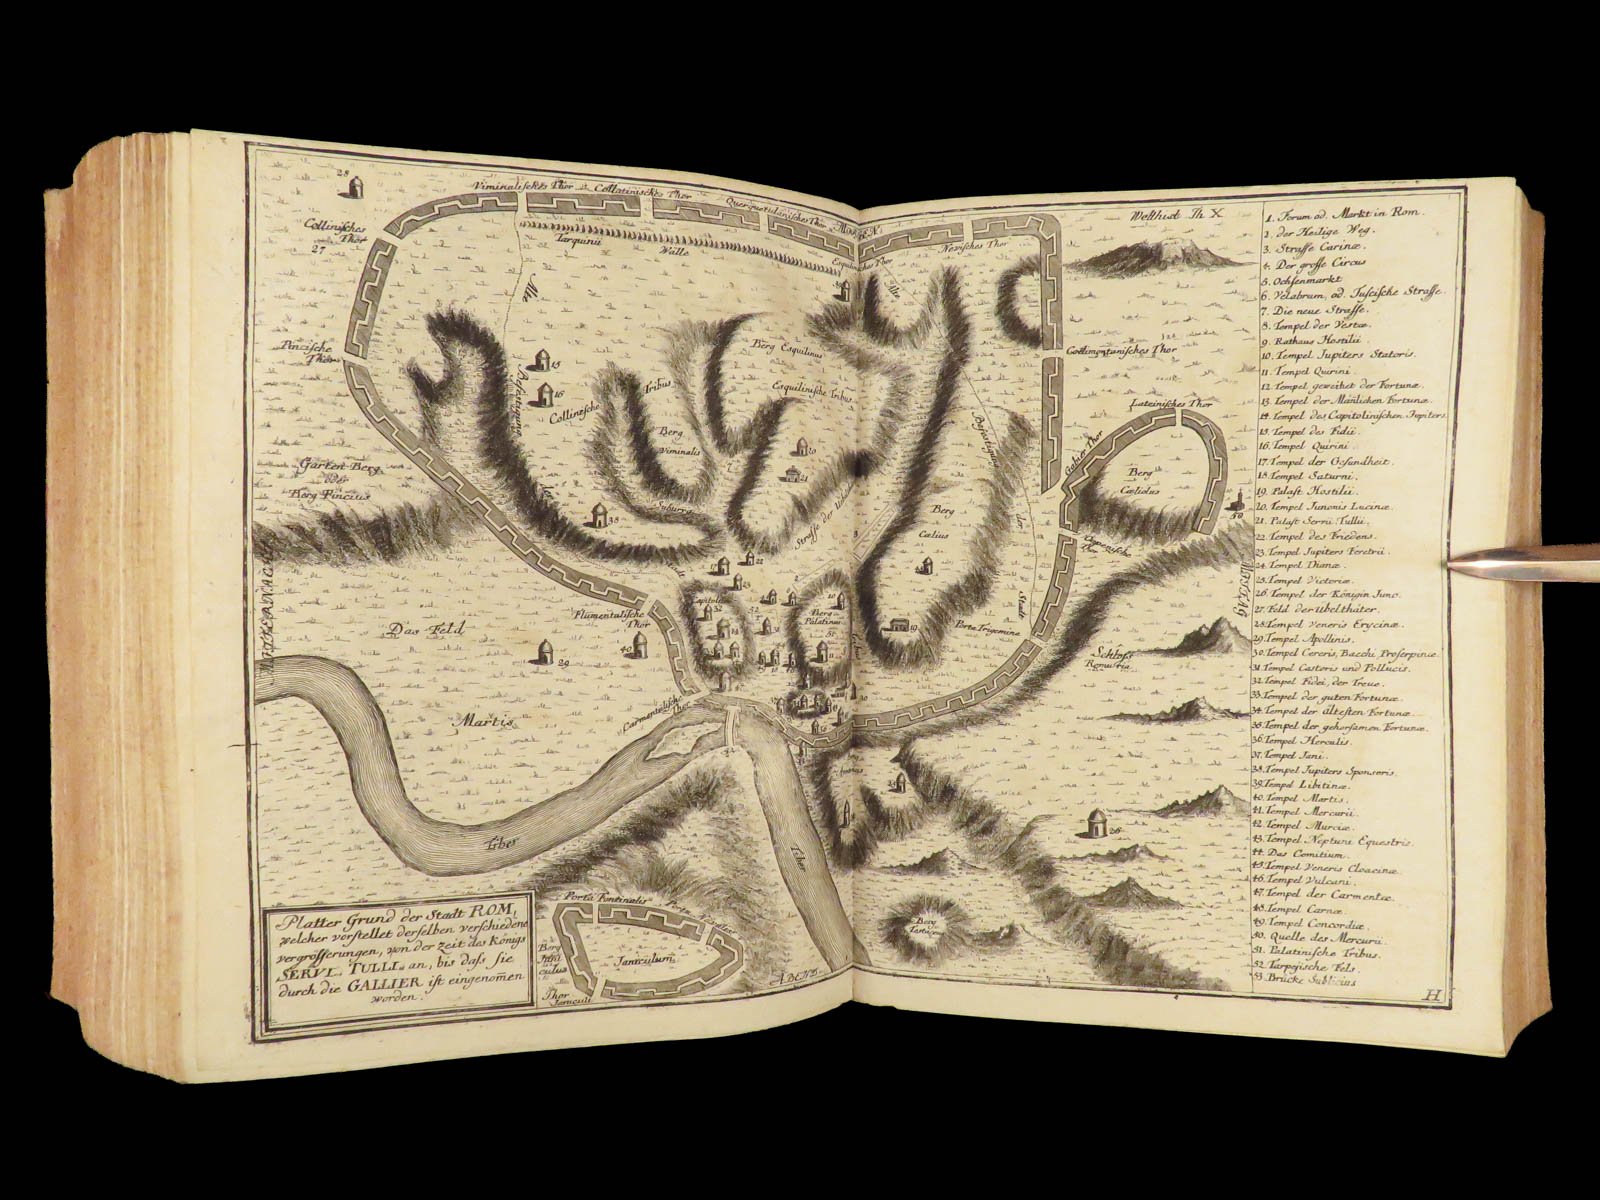 28
Viminalisches Thor
Collatinisches Thor
Querquetulanisches Thor
Collinisches
Thor
27
Tarquinii
Wälle
Nevisches Thor
Welthist Th X
Alte
Pincische
Thor
15
16
Collinische
Tribus
Berg
Viminalis
Berg Esquilinus
Esquilinische Tribus
Cœlimontanisches Thor
Lateinisches Thor
Gabier Thor
Berg
Cœliolus
50
Garten Berg
oder
Berg Pincius
38
Suburra
20
21
Strasse der
Berg
Cælius
der
Stadt
22
23
19
Porta Trigemina
Capitolin
Berg
Palatinus
Das Feld
Flumentalische
Thor
29
40
Schloss
Martis
Carmentalische
Thor
Tiber
Tiber
26
Porta Fontinalis
Berg
Jani
culus
Janiculum
Thor
Janiculi
ABEND
Platter Grund der Stadt ROM,
welcher vorstellet derselben verschiedene
vergrösserungen, von der zeit des Königs
SERVI TULLI an, bis dass sie
durch die GALLIER ist eingenomen
worden.
1. Forum od. Markt in Rom.
2. der Heilige Weg.
3. Strasse Carinæ.
4. Der grosse Circus
5. Ochsenmarkt
6. Velabrum, od. Tuscische Strasse.
7. Die neue Strasse.
8. Tempel der Vestæ.
9. Rathaus Hostilii.
10. Tempel Jupiters Statoris.
11. Tempel Quirini.
12. Tempel geweihet der Fortunæ.
13. Tempel der Mañlichen Fortunæ.
14. Tempel des Capitolinischen Jupiters.
15. Tempel des Fidii.
16. Tempel Quirini.
17. Tempel der Gesundheit.
18. Tempel Saturni.
19. Palast Hostilii.
20. Tempel Junonis Lucinæ.
21. Palast Servii Tullii.
22. Tempel des Friedens.
23. Tempel Jupiters Feretrii.
24. Tempel Dianæ.
25. Tempel Victoriæ.
26. Tempel der Königin Juno.
27. Feld der Ubelthäter.
28. Tempel Veneris Erycinæ.
29. Tempel Apollinis.
30. Tempel Cereris, Bacchi Proserpinæ.
31. Tempel Castoris und Pollucis.
32. Tempel Fidei, der Treue.
33. Tempel der guten Fortunæ.
34. Tempel der ältesten Fortunæ.
35. Tempel der gehorsamen Fortunæ.
36. Tempel Herculis.
37. Tempel Jani.
38. Tempel Jupiters Sponsoris.
39. Tempel Libitinæ.
40. Tempel Martis.
41. Tempel Mercurii.
42. Tempel Murciæ.
43. Tempel Neptuni Equestris.
44. Das Comitium.
45. Tempel Veneris Cloacinæ.
46. Tempel Vulcani.
47. Tempel der Carmentæ.
48. Tempel Carnæ.
49. Tempel Concordiæ.
50. Quelle des Mercurii.
51. Palatinische Tribus.
52. Tarpejische Fels.
53. Brücke Sublicius
H